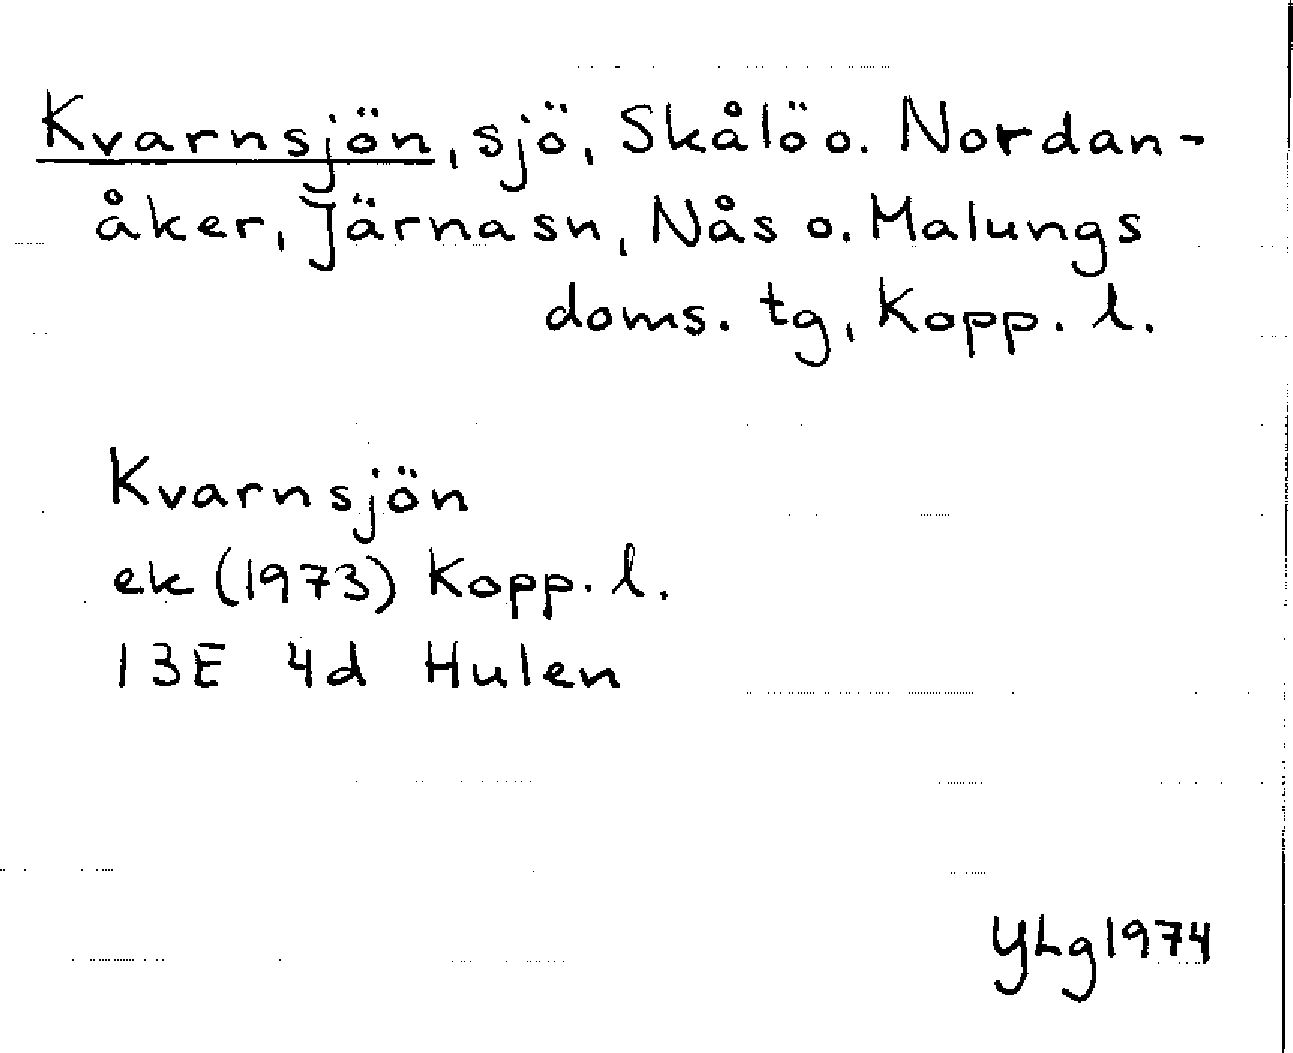 Kvarnsjön, sjö, Skålö o. Nordan-
åker, Järna sn, Nås o. Malungs
doms. tg, Kopp. l.
Kvarnsjön
ek (1973) Kopp. l.
13E 4d Hulen
YLg 1974